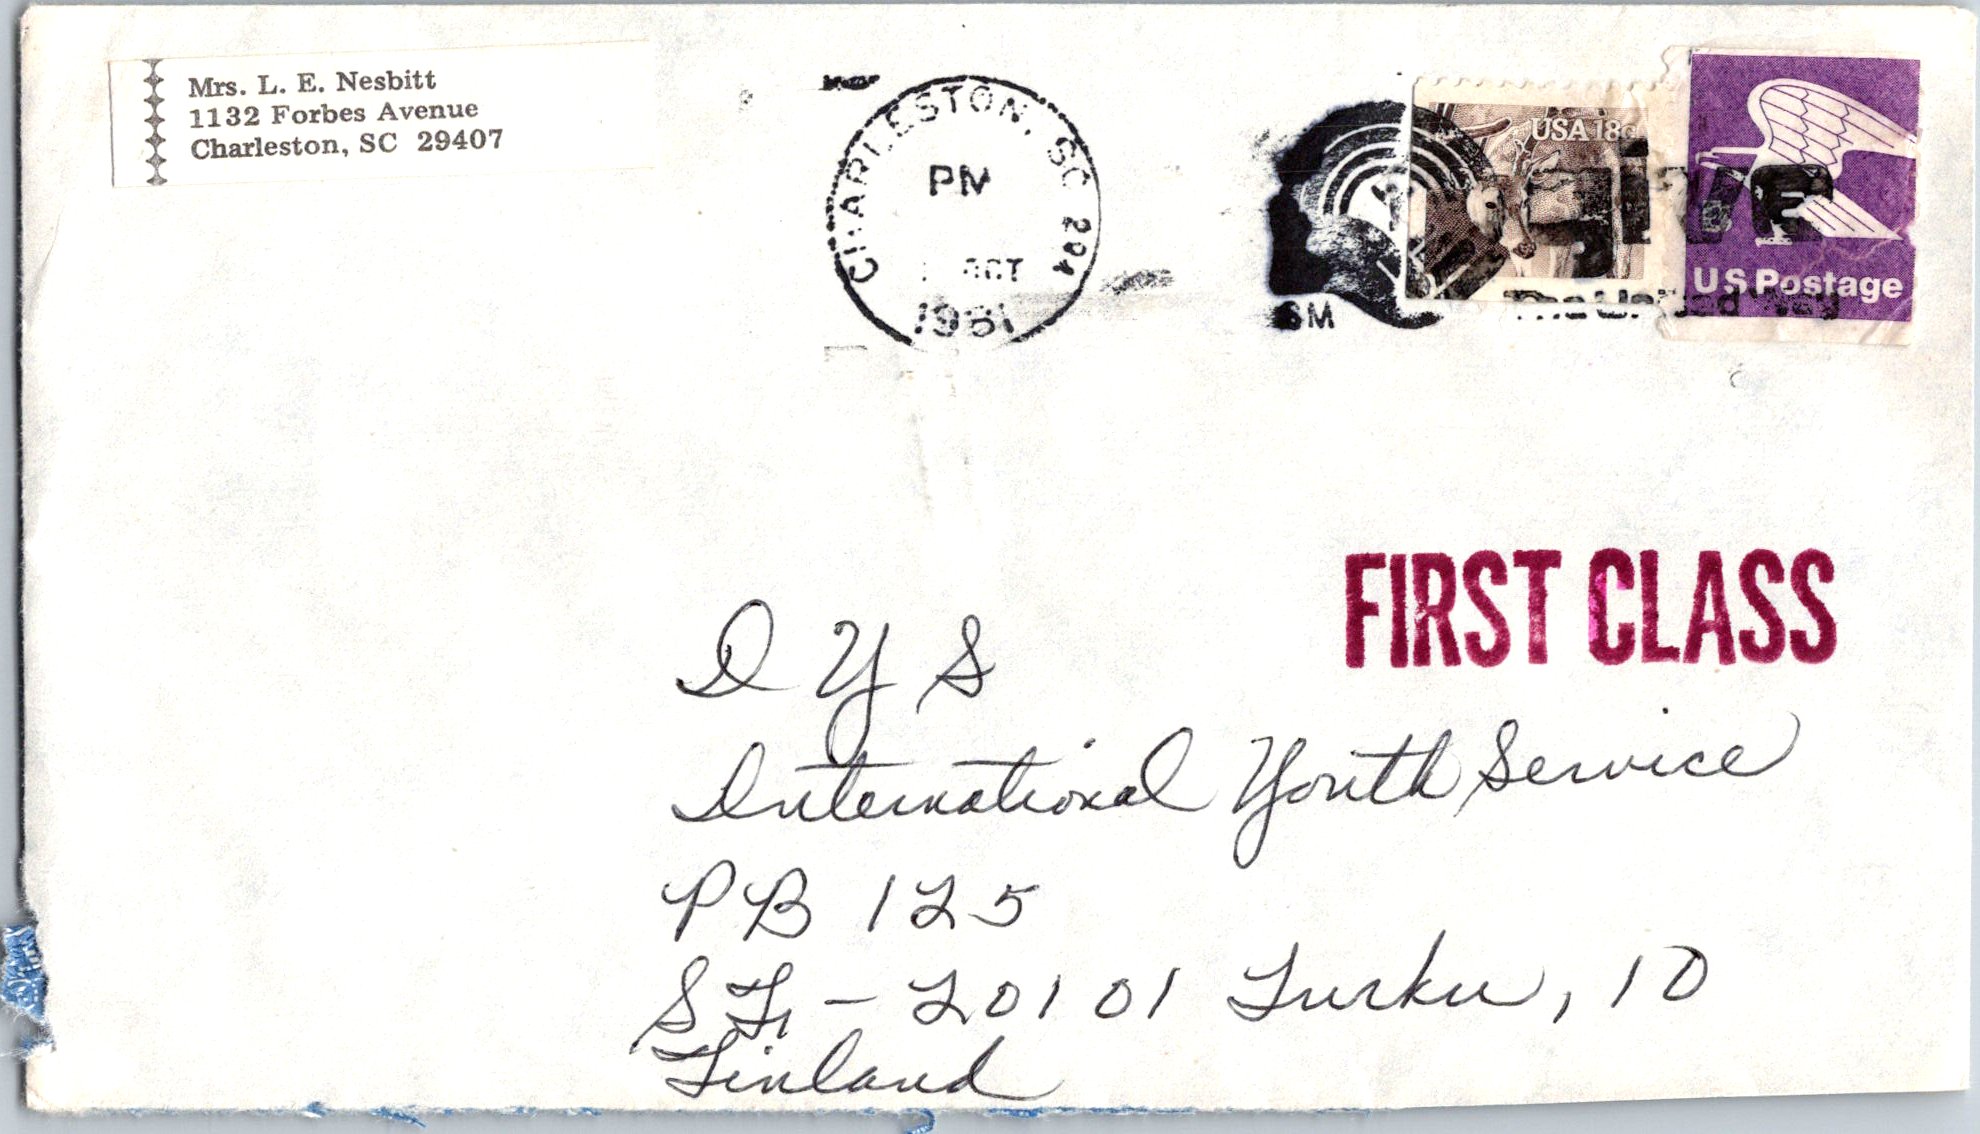 Mrs. L. E. Nesbitt
1132 Forbes Avenue
Charleston, SC 29407
CHARLESTON, SC 294
PM
OCT
1981
USA 18c
US Postage
GIVE
SM
The United Way
FIRST CLASS
I Y S
International Youth Service
PB 125
SF - 20101 01 Turku, 10
Finland